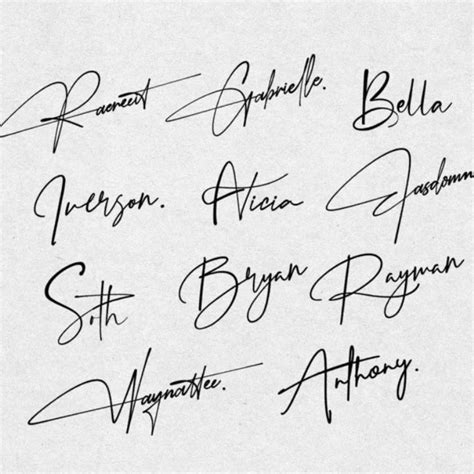 Raereeut Gabrielle. Bella
Iverson. Alicia Jasdomn
Soth Bryan Rayman
Waynattee. Anthony.